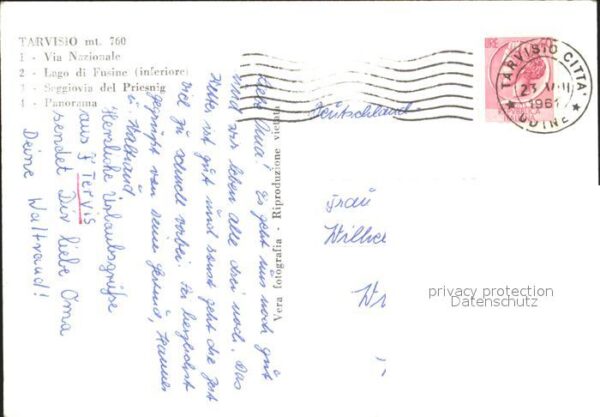 TARVISIO mt. 760
1 - Via Nazionale
2 - Lago di Fusine (inferiore)
3 - Seggiovia del Priesnig
4 - Panorama
Vera fotografia - Riproduzione vietata
TARVISIO CITTÀ
1961
UDINE
Deutschland
Frau
privacy protection
Datenschutz
Liebe Oma! Es geht uns noch gut
und wir leben alle drei noch. Das
Wetter ist gut und sonst geht die Zeit
viel zu schnell vorbei. Sei herzlichst
gegrüßt von Deine Gerud, Hannes
u. Waltraud
Herzliche Urlaubsgrüße
aus Tervis
sendet Dir liebe Oma
Deine Waltraud!